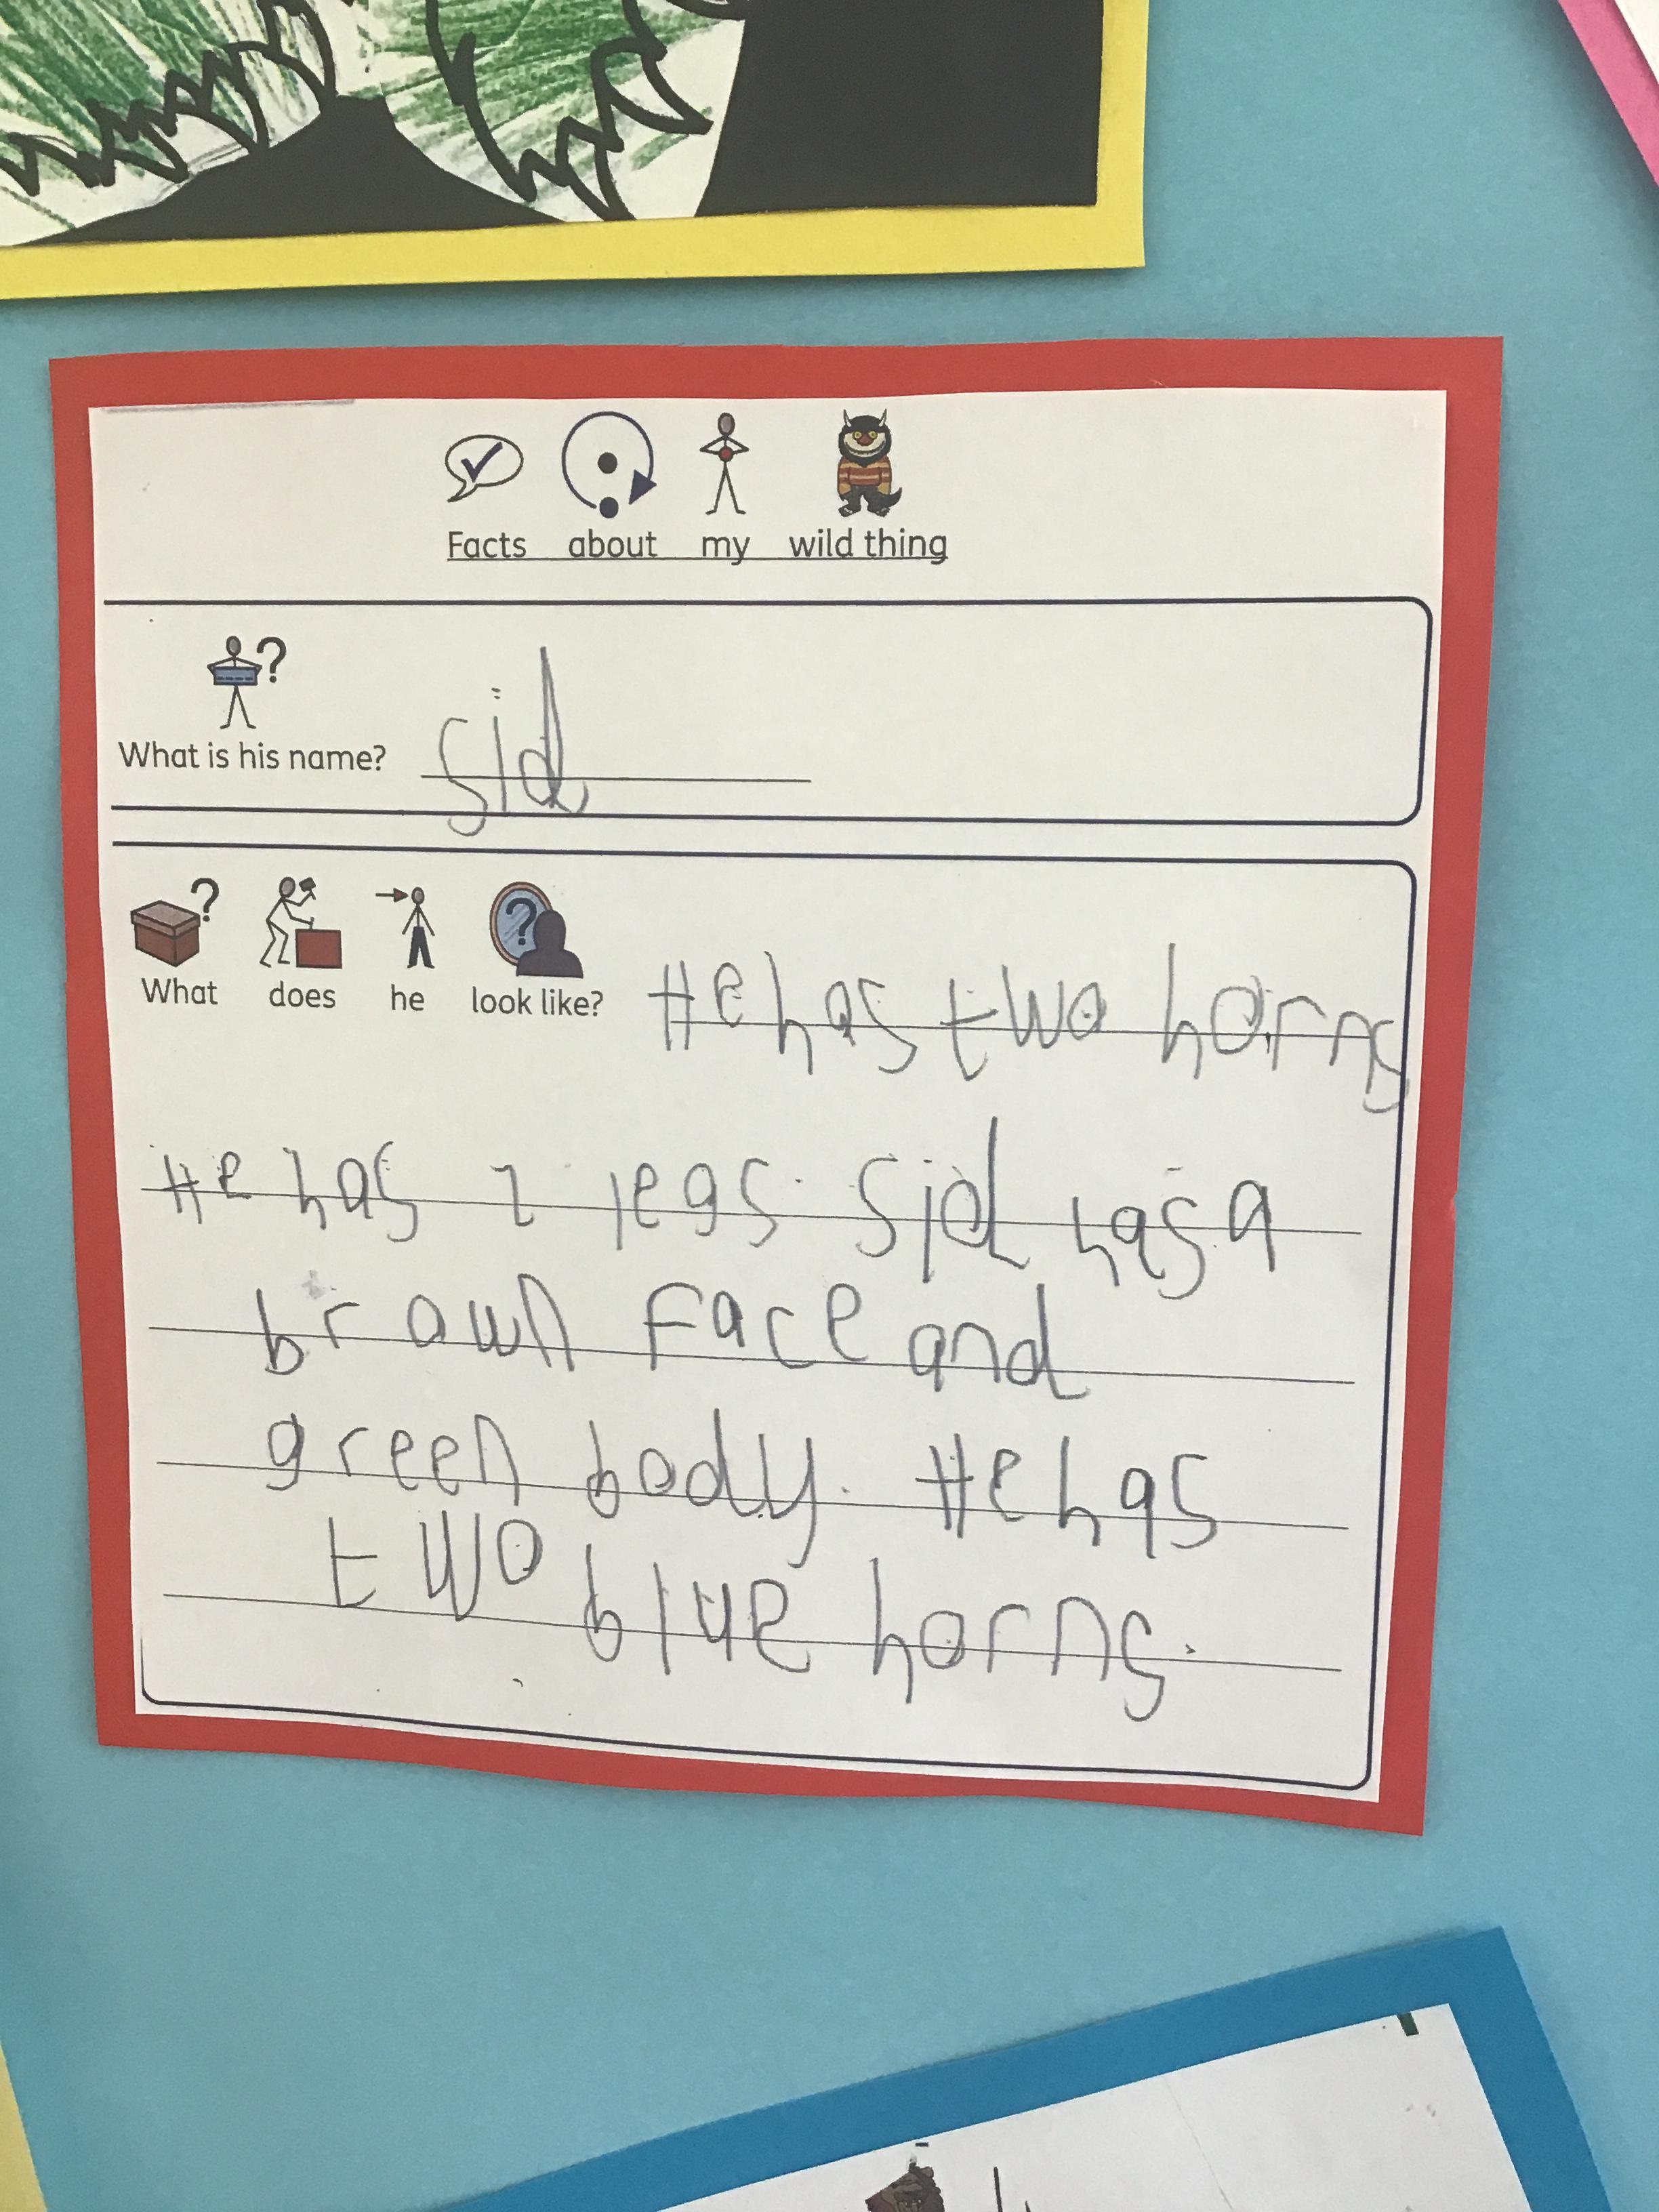 Facts about my wild thing
What is his name? sid
What does he look like? He has two horns
He has 2 legs. Sid has a
brown face and
green body. He has
two blue horns.